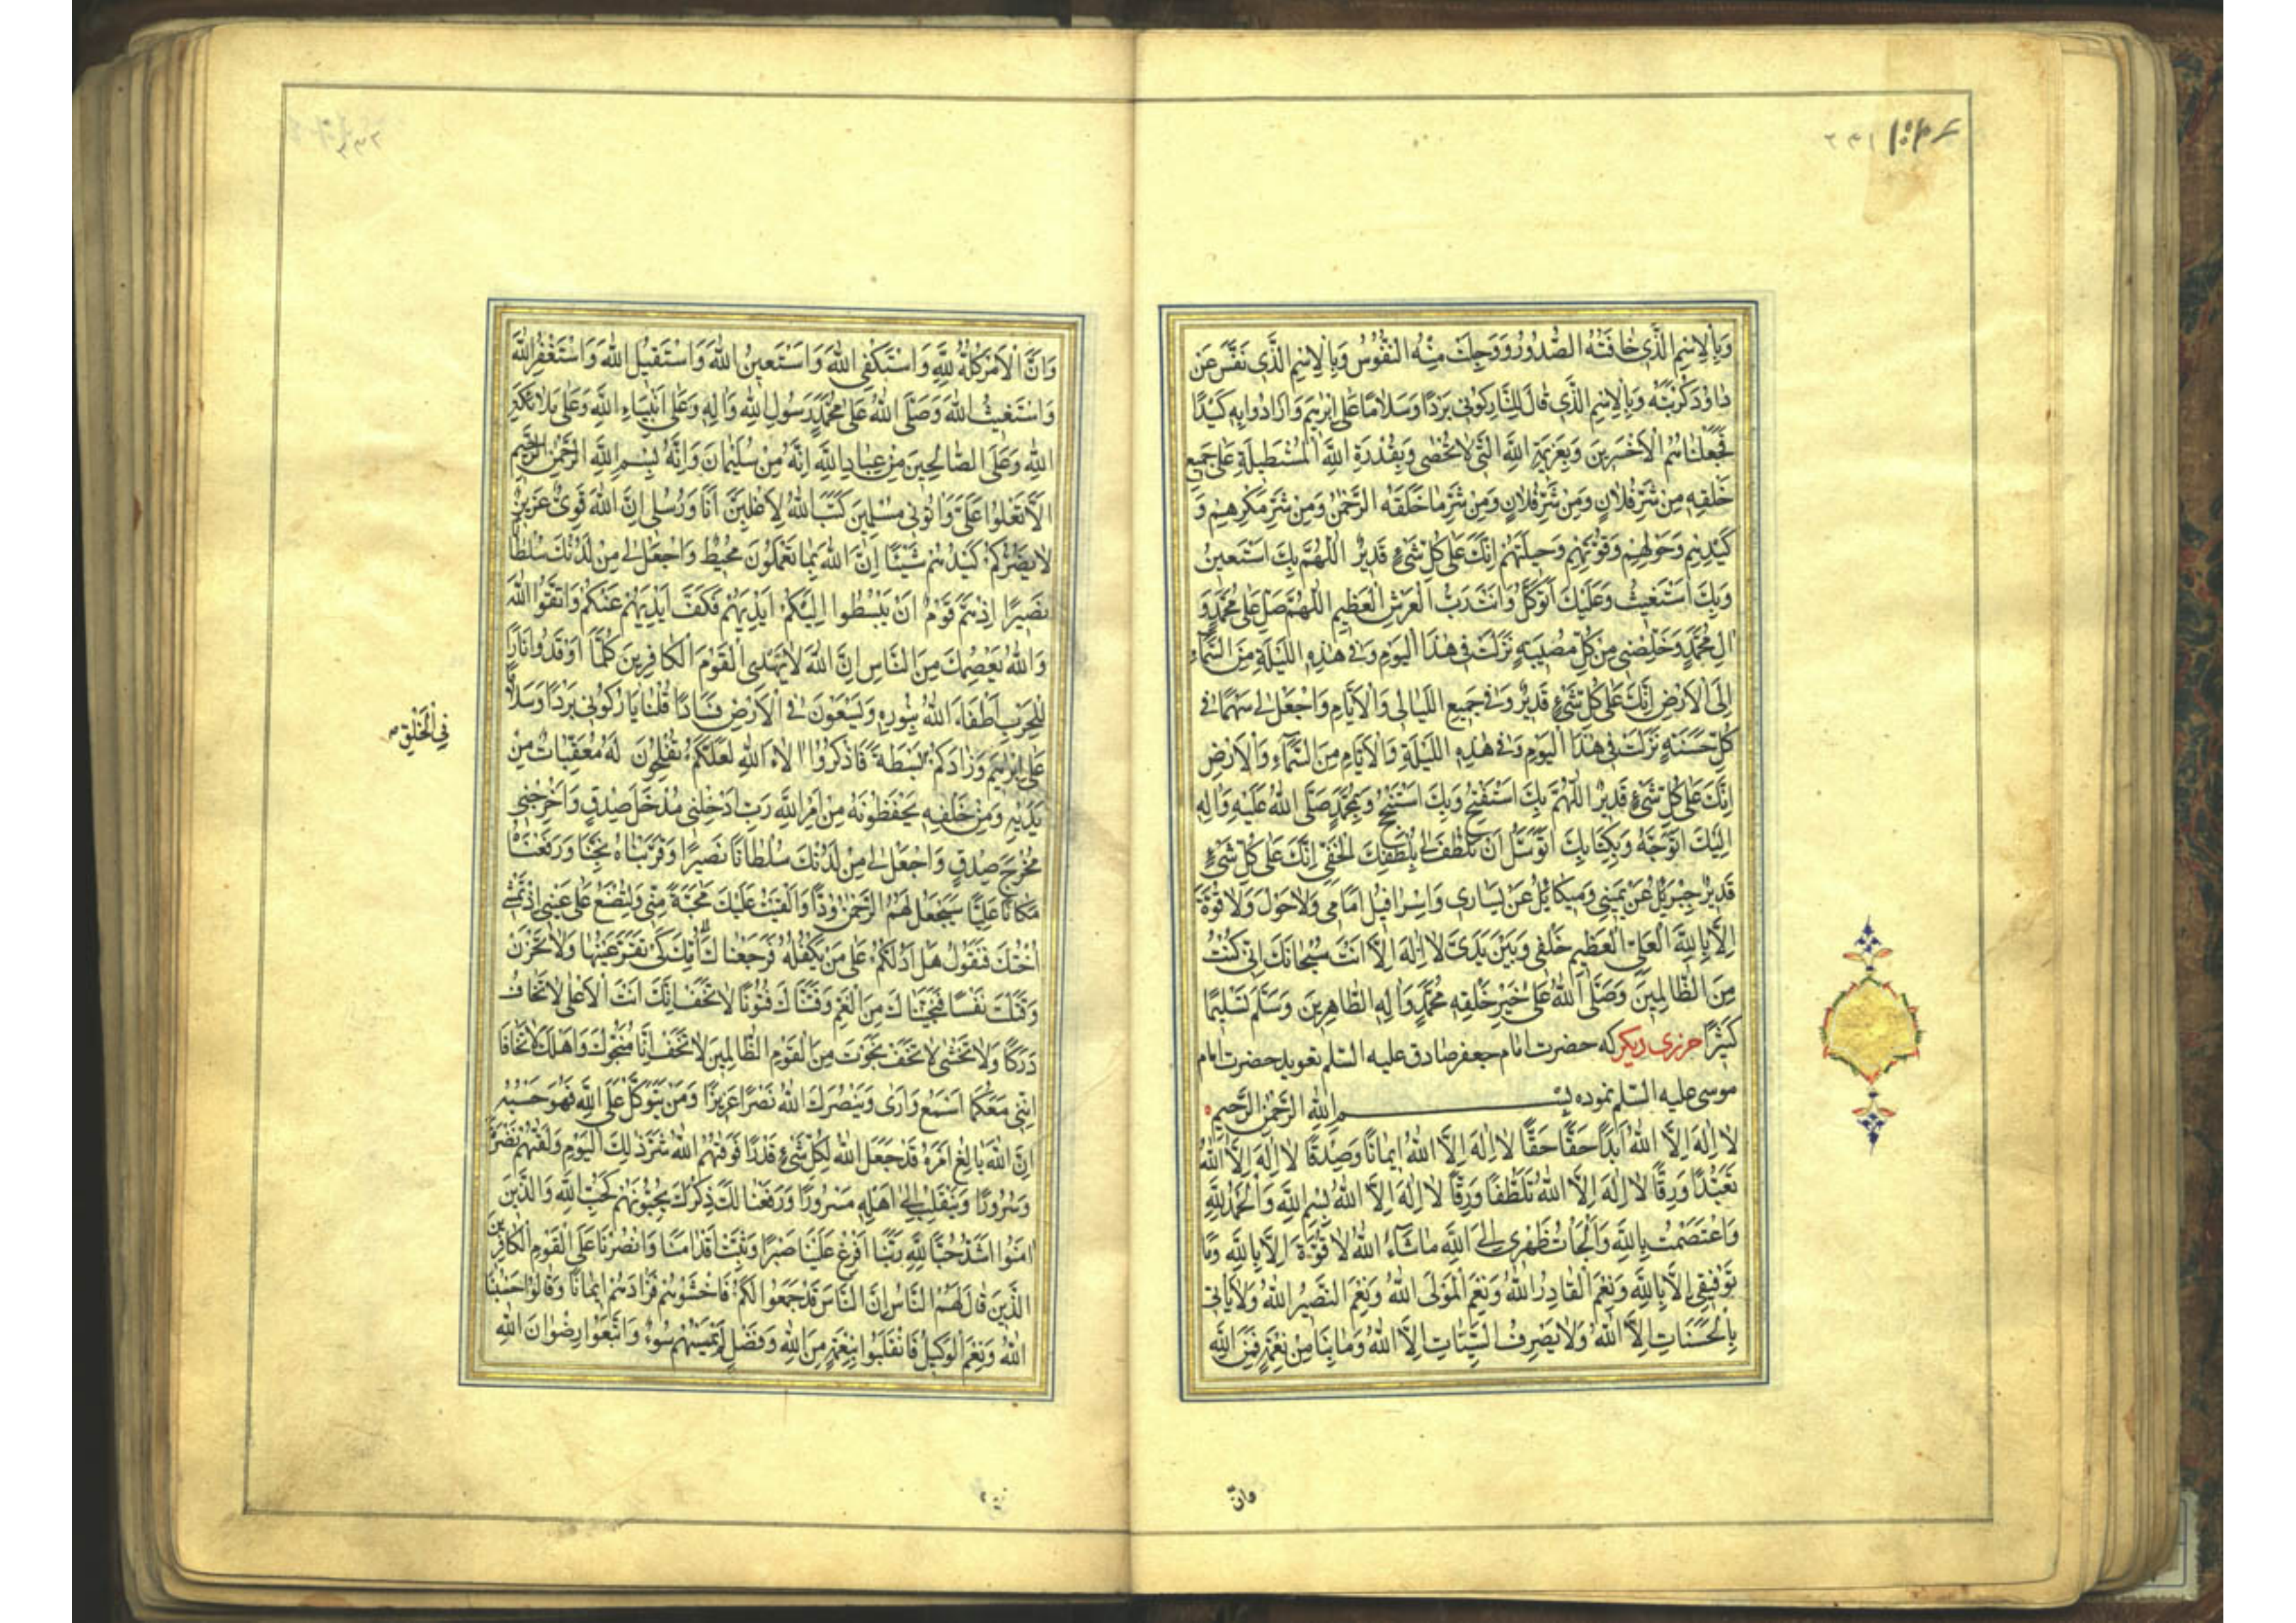 وَبِالْاِسْمِ الَّذِی خَافَتْهُ الصُّدُورُ وَوَجِلَتْ مِنْهُ النُّفُوسُ وَبِالْاِسْمِ الَّذِی نَفَّسَ عَنْ
دَاوُدَ كُرْبَتَهُ وَبِالْاِسْمِ الَّذِی قَالَ لِلنَّارِ كُونِی بَرْدًا وَسَلَامًا عَلَی اِبْرٰهِیمَ وَاَرَادُوا بِهِ كَیْدًا
فَجَعَلْنَاهُمُ الْاَخْسَرِینَ وَبِعَزِیمَةِ اللهِ الَّتِی لَا تُحْصَی وَبِقُدْرَةِ اللهِ الْمُسْتَطِیلَةِ عَلَی جَمِیعِ
خَلْقِهِ مِنْ شَرِّ فُلَانٍ وَمِنْ شَرِّ فُلَانٍ وَمِنْ شَرِّ مَا خَلَقَهُ الرَّحْمٰنُ وَمِنْ شَرِّ مَكْرِهِمْ وَ
كَیْدِهِمْ وَحَوْلِهِمْ وَقُوَّتِهِمْ وَحِیلَتِهِمْ اِنَّكَ عَلَی كُلِّ شَیْءٍ قَدِیرٌ اَللّٰهُمَّ بِكَ اَسْتَعِینُ
وَبِكَ اَسْتَغِیثُ وَعَلَیْكَ اَتَوَكَّلُ وَاَنْتَ رَبُّ الْعَرْشِ الْعَظِیمِ اَللّٰهُمَّ صَلِّ عَلَی مُحَمَّدٍ وَ
اٰلِ مُحَمَّدٍ وَخَلِّصْنِی مِنْ كُلِّ مُصِیبَةٍ نَزَلَتْ فِی هٰذَا الْیَوْمِ وَفِی هٰذِهِ اللَّیْلَةِ مِنَ السَّمَاءِ
اِلَی الْاَرْضِ اِنَّكَ عَلَی كُلِّ شَیْءٍ قَدِیرٌ وَفِی جَمِیعِ اللَّیَالِی وَالْاَیَّامِ وَاجْعَلْ لِی سَهْمًا فِی
كُلِّ حَسَنَةٍ نَزَلَتْ فِی هٰذَا الْیَوْمِ وَفِی هٰذِهِ اللَّیْلَةِ وَالْاَیَّامِ مِنَ السَّمَاءِ وَالْاَرْضِ
اِنَّكَ عَلَی كُلِّ شَیْءٍ قَدِیرٌ اَللّٰهُمَّ بِكَ اَسْتَفْتِحُ وَبِكَ اَسْتَنْجِحُ وَبِمُحَمَّدٍ صَلَّی اللهُ عَلَیْهِ وَاٰلِهِ
اِلَیْكَ اَتَوَجَّهُ وَبِكِتَابِكَ اَتَوَسَّلُ اَنْ تَلْطُفَ لِی بِلُطْفِكَ الْخَفِیِّ اِنَّكَ عَلَی كُلِّ شَیْءٍ
قَدِیرٌ جِبْرَئِیلُ عَنْ یَمِینِی وَمِیكَائِیلُ عَنْ یَسَارِی وَاِسْرَافِیلُ اَمَامِی وَلَا حَوْلَ وَلَا قُوَّةَ
اِلَّا بِاللهِ الْعَلِیِّ الْعَظِیمِ خَلْفِی وَبَیْنَ یَدَیَّ لَا اِلٰهَ اِلَّا اَنْتَ سُبْحَانَكَ اِنِّی كُنْتُ
مِنَ الظَّالِمِینَ وَصَلَّی اللهُ عَلَی خَیْرِ خَلْقِهِ مُحَمَّدٍ وَاٰلِهِ الطَّاهِرِینَ وَسَلَّمَ تَسْلِیمًا
كَثِیرًا حرزی دیكر كه حضرت امام جعفر صادق علیه السّلم تعوید حضرت امام
موسی علیه السّلم نموده بِسْمِ اللهِ الرَّحْمٰنِ الرَّحِیمِ
لَا اِلٰهَ اِلَّا اللهُ اَبَدًا حَقًّا حَقًّا لَا اِلٰهَ اِلَّا اللهُ اِیمَانًا وَصِدْقًا لَا اِلٰهَ اِلَّا اللهُ
تَعَبُّدًا وَرِقًّا لَا اِلٰهَ اِلَّا اللهُ تَلَطُّفًا وَرِفْقًا لَا اِلٰهَ اِلَّا اللهُ بِسْمِ اللهِ وَالْحَمْدُ لِلّٰهِ
وَاعْتَصَمْتُ بِاللهِ وَاَلْجَأْتُ ظَهْرِی اِلَی اللهِ مَا شَاءَ اللهُ لَا قُوَّةَ اِلَّا بِاللهِ وَمَا
تَوْفِیقِی اِلَّا بِاللهِ وَنِعْمَ الْقَادِرُ اللهُ وَنِعْمَ الْمَوْلَی اللهُ وَنِعْمَ النَّصِیرُ اللهُ وَلَا یَأْتِی
بِالْحَسَنَاتِ اِلَّا اللهُ وَلَا یَصْرِفُ السَّیِّئَاتِ اِلَّا اللهُ وَمَا بِنَا مِنْ نِعْمَةٍ فَمِنَ اللهِ
وان
وَاَنَّ الْاَمْرَ كُلَّهُ لِلّٰهِ وَاَسْتَكْفِی اللهَ وَاَسْتَعِینُ اللهَ وَاَسْتَقِیلُ اللهَ وَاَسْتَغْفِرُ اللهَ
وَاَسْتَغِیثُ اللهَ وَصَلَّی اللهُ عَلَی مُحَمَّدٍ رَسُولِ اللهِ وَاٰلِهِ وَعَلَی اَنْبِیَاءِ اللهِ وَعَلَی مَلَائِكَةِ
اللهِ وَعَلَی الصَّالِحِینَ مِنْ عِبَادِ اللهِ اِنَّهُ مِنْ سُلَیْمَانَ وَاِنَّهُ بِسْمِ اللهِ الرَّحْمٰنِ الرَّحِیمِ
اَلَّا تَعْلُوا عَلَیَّ وَأْتُونِی مُسْلِمِینَ كَتَبَ اللهُ لَاَغْلِبَنَّ اَنَا وَرُسُلِی اِنَّ اللهَ قَوِیٌّ عَزِیزٌ
لَا یَضُرُّكُمْ كَیْدُهُمْ شَیْئًا اِنَّ اللهَ بِمَا تَعْمَلُونَ مُحِیطٌ وَاجْعَلْ لِی مِنْ لَدُنْكَ سُلْطَانًا
نَصِیرًا اِذْ هَمَّ قَوْمٌ اَنْ یَبْسُطُوا اِلَیْكُمْ اَیْدِیَهُمْ فَكَفَّ اَیْدِیَهُمْ عَنْكُمْ وَاتَّقُوا اللهَ
وَاللهُ یَعْصِمُكَ مِنَ النَّاسِ اِنَّ اللهَ لَا یَهْدِی الْقَوْمَ الْكَافِرِینَ كُلَّمَا اَوْقَدُوا نَارًا
لِلْحَرْبِ اَطْفَاَهَا اللهُ وَیَسْعَوْنَ فِی الْاَرْضِ فَسَادًا قُلْنَا یَا نَارُ كُونِی بَرْدًا وَسَلَامًا
عَلَی اِبْرٰهِیمَ وَزَادَكُمْ بَسْطَةً فَاذْكُرُوا اٰلَاءَ اللهِ لَعَلَّكُمْ تُفْلِحُونَ لَهُ مُعَقِّبَاتٌ مِنْ
فِی الْخَلْقِ
یَدَیْهِ وَمِنْ خَلْفِهِ یَحْفَظُونَهُ مِنْ اَمْرِ اللهِ رَبِّ اَدْخِلْنِی مُدْخَلَ صِدْقٍ وَاَخْرِجْنِی
مُخْرَجَ صِدْقٍ وَاجْعَلْ لِی مِنْ لَدُنْكَ سُلْطَانًا نَصِیرًا وَقَرَّبْنَاهُ نَجِیًّا وَرَفَعْنَاهُ
مَكَانًا عَلِیًّا سَیَجْعَلُ لَهُمُ الرَّحْمٰنُ وُدًّا وَاَلْقَیْتُ عَلَیْكَ مَحَبَّةً مِنِّی وَلِتُصْنَعَ عَلَی عَیْنِی اِذْ تَمْشِی
اُخْتُكَ فَتَقُولُ هَلْ اَدُلُّكُمْ عَلَی مَنْ یَكْفُلُهُ فَرَجَعْنَاكَ اِلَی اُمِّكَ كَیْ تَقَرَّ عَیْنُهَا وَلَا تَحْزَنَ
وَقَتَلْتَ نَفْسًا فَنَجَّیْنَاكَ مِنَ الْغَمِّ وَفَتَنَّاكَ فُتُونًا لَا تَخَفْ اِنَّكَ اَنْتَ الْاَعْلَی لَا تَخَافُ
دَرَكًا وَلَا تَخْشَی لَا تَخَفْ نَجَوْتَ مِنَ الْقَوْمِ الظَّالِمِینَ لَا تَخَفْ اِنَّا مُنَجُّوكَ وَاَهْلَكَ لَا تَخَافَا
اِنَّنِی مَعَكُمَا اَسْمَعُ وَاَرَی وَیَنْصُرَكَ اللهُ نَصْرًا عَزِیزًا وَمَنْ یَتَوَكَّلْ عَلَی اللهِ فَهُوَ حَسْبُهُ
اِنَّ اللهَ بَالِغُ اَمْرِهِ قَدْ جَعَلَ اللهُ لِكُلِّ شَیْءٍ قَدْرًا فَوَقٰهُمُ اللهُ شَرَّ ذٰلِكَ الْیَوْمِ وَلَقّٰهُمْ نَضْرَةً
وَسُرُورًا وَیَنْقَلِبُ اِلٰی اَهْلِهِ مَسْرُورًا وَرَفَعْنَا لَكَ ذِكْرَكَ یُحِبُّونَهُمْ كَحُبِّ اللهِ وَالَّذِینَ
اٰمَنُوا اَشَدُّ حُبًّا لِلّٰهِ رَبَّنَا اَفْرِغْ عَلَیْنَا صَبْرًا وَثَبِّتْ اَقْدَامَنَا وَانْصُرْنَا عَلَی الْقَوْمِ الْكَافِرِینَ
الَّذِینَ قَالَ لَهُمُ النَّاسُ اِنَّ النَّاسَ قَدْ جَمَعُوا لَكُمْ فَاخْشَوْهُمْ فَزَادَهُمْ اِیمَانًا وَقَالُوا حَسْبُنَا
اللهُ وَنِعْمَ الْوَكِیلُ فَانْقَلَبُوا بِنِعْمَةٍ مِنَ اللهِ وَفَضْلٍ لَمْ یَمْسَسْهُمْ سُوءٌ وَاتَّبَعُوا رِضْوَانَ اللهِ